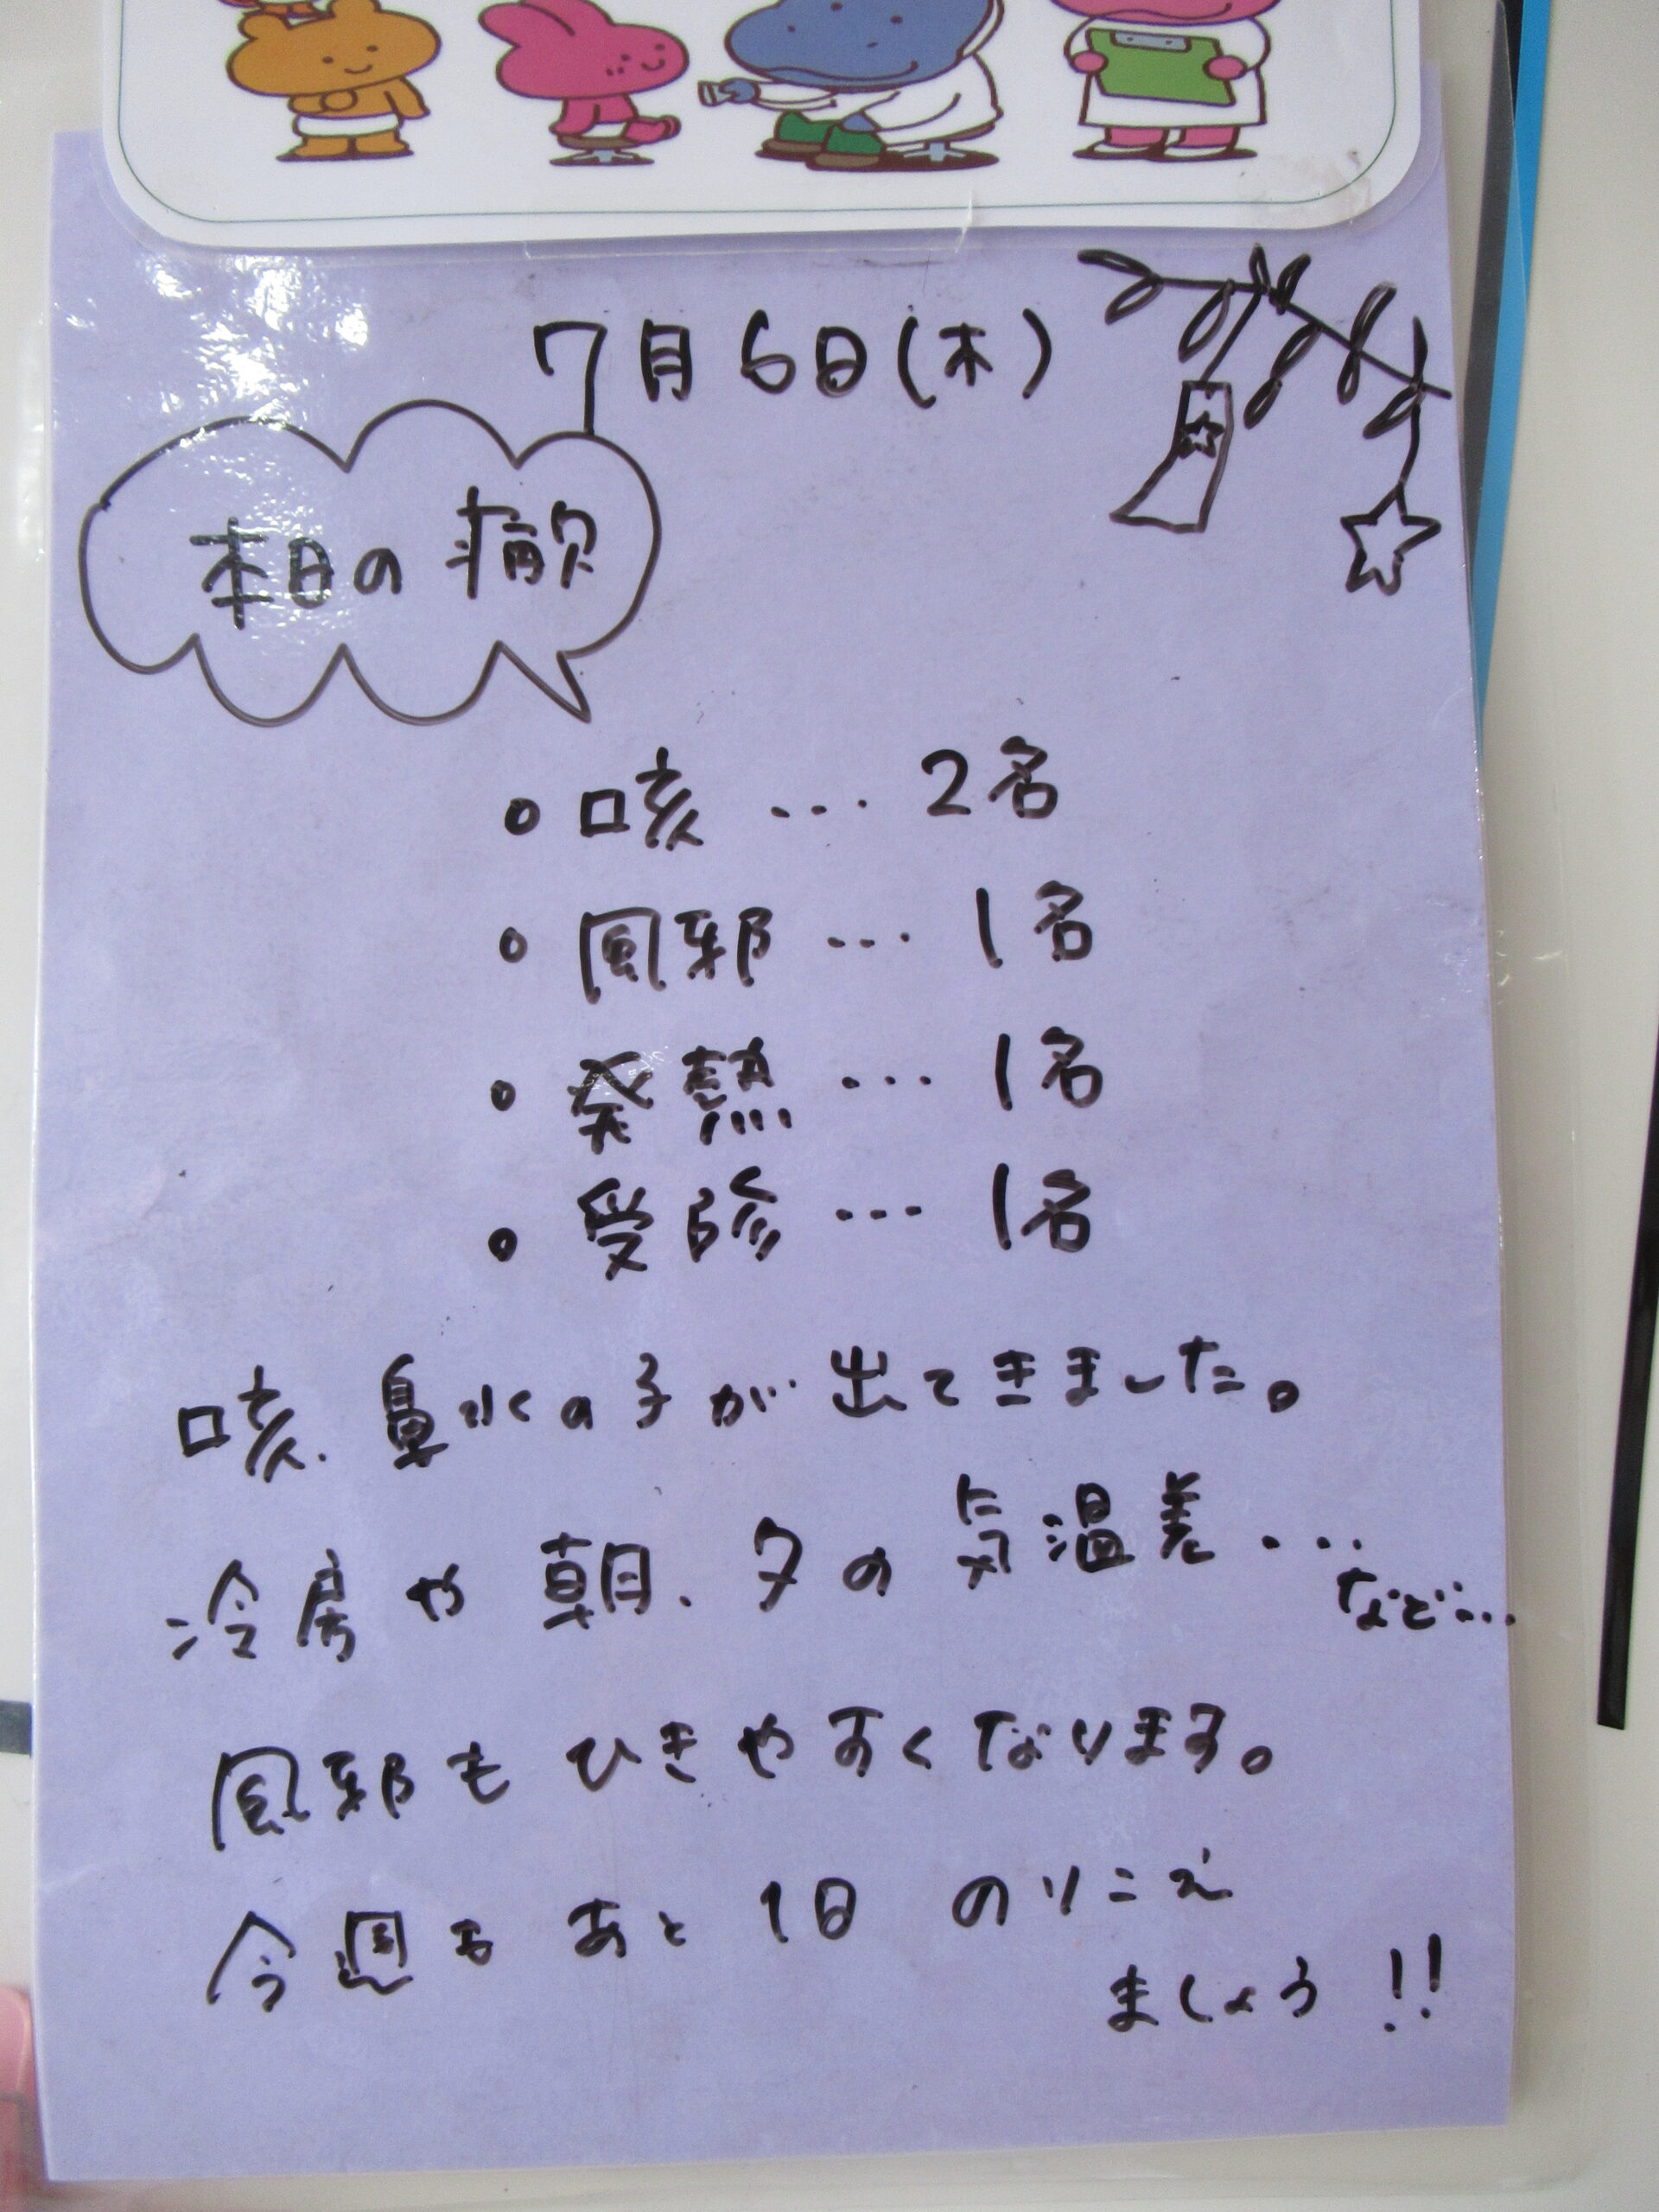 7月6日(木)
本日の病欠
○咳…2名
○風邪…1名
○発熱…1名
○受診…1名
咳、鼻水の子が出てきました。
冷房や朝、夕の気温差…
など…
風邪もひきやすくなります。
今週もあと1日のりこえ
ましょう!!